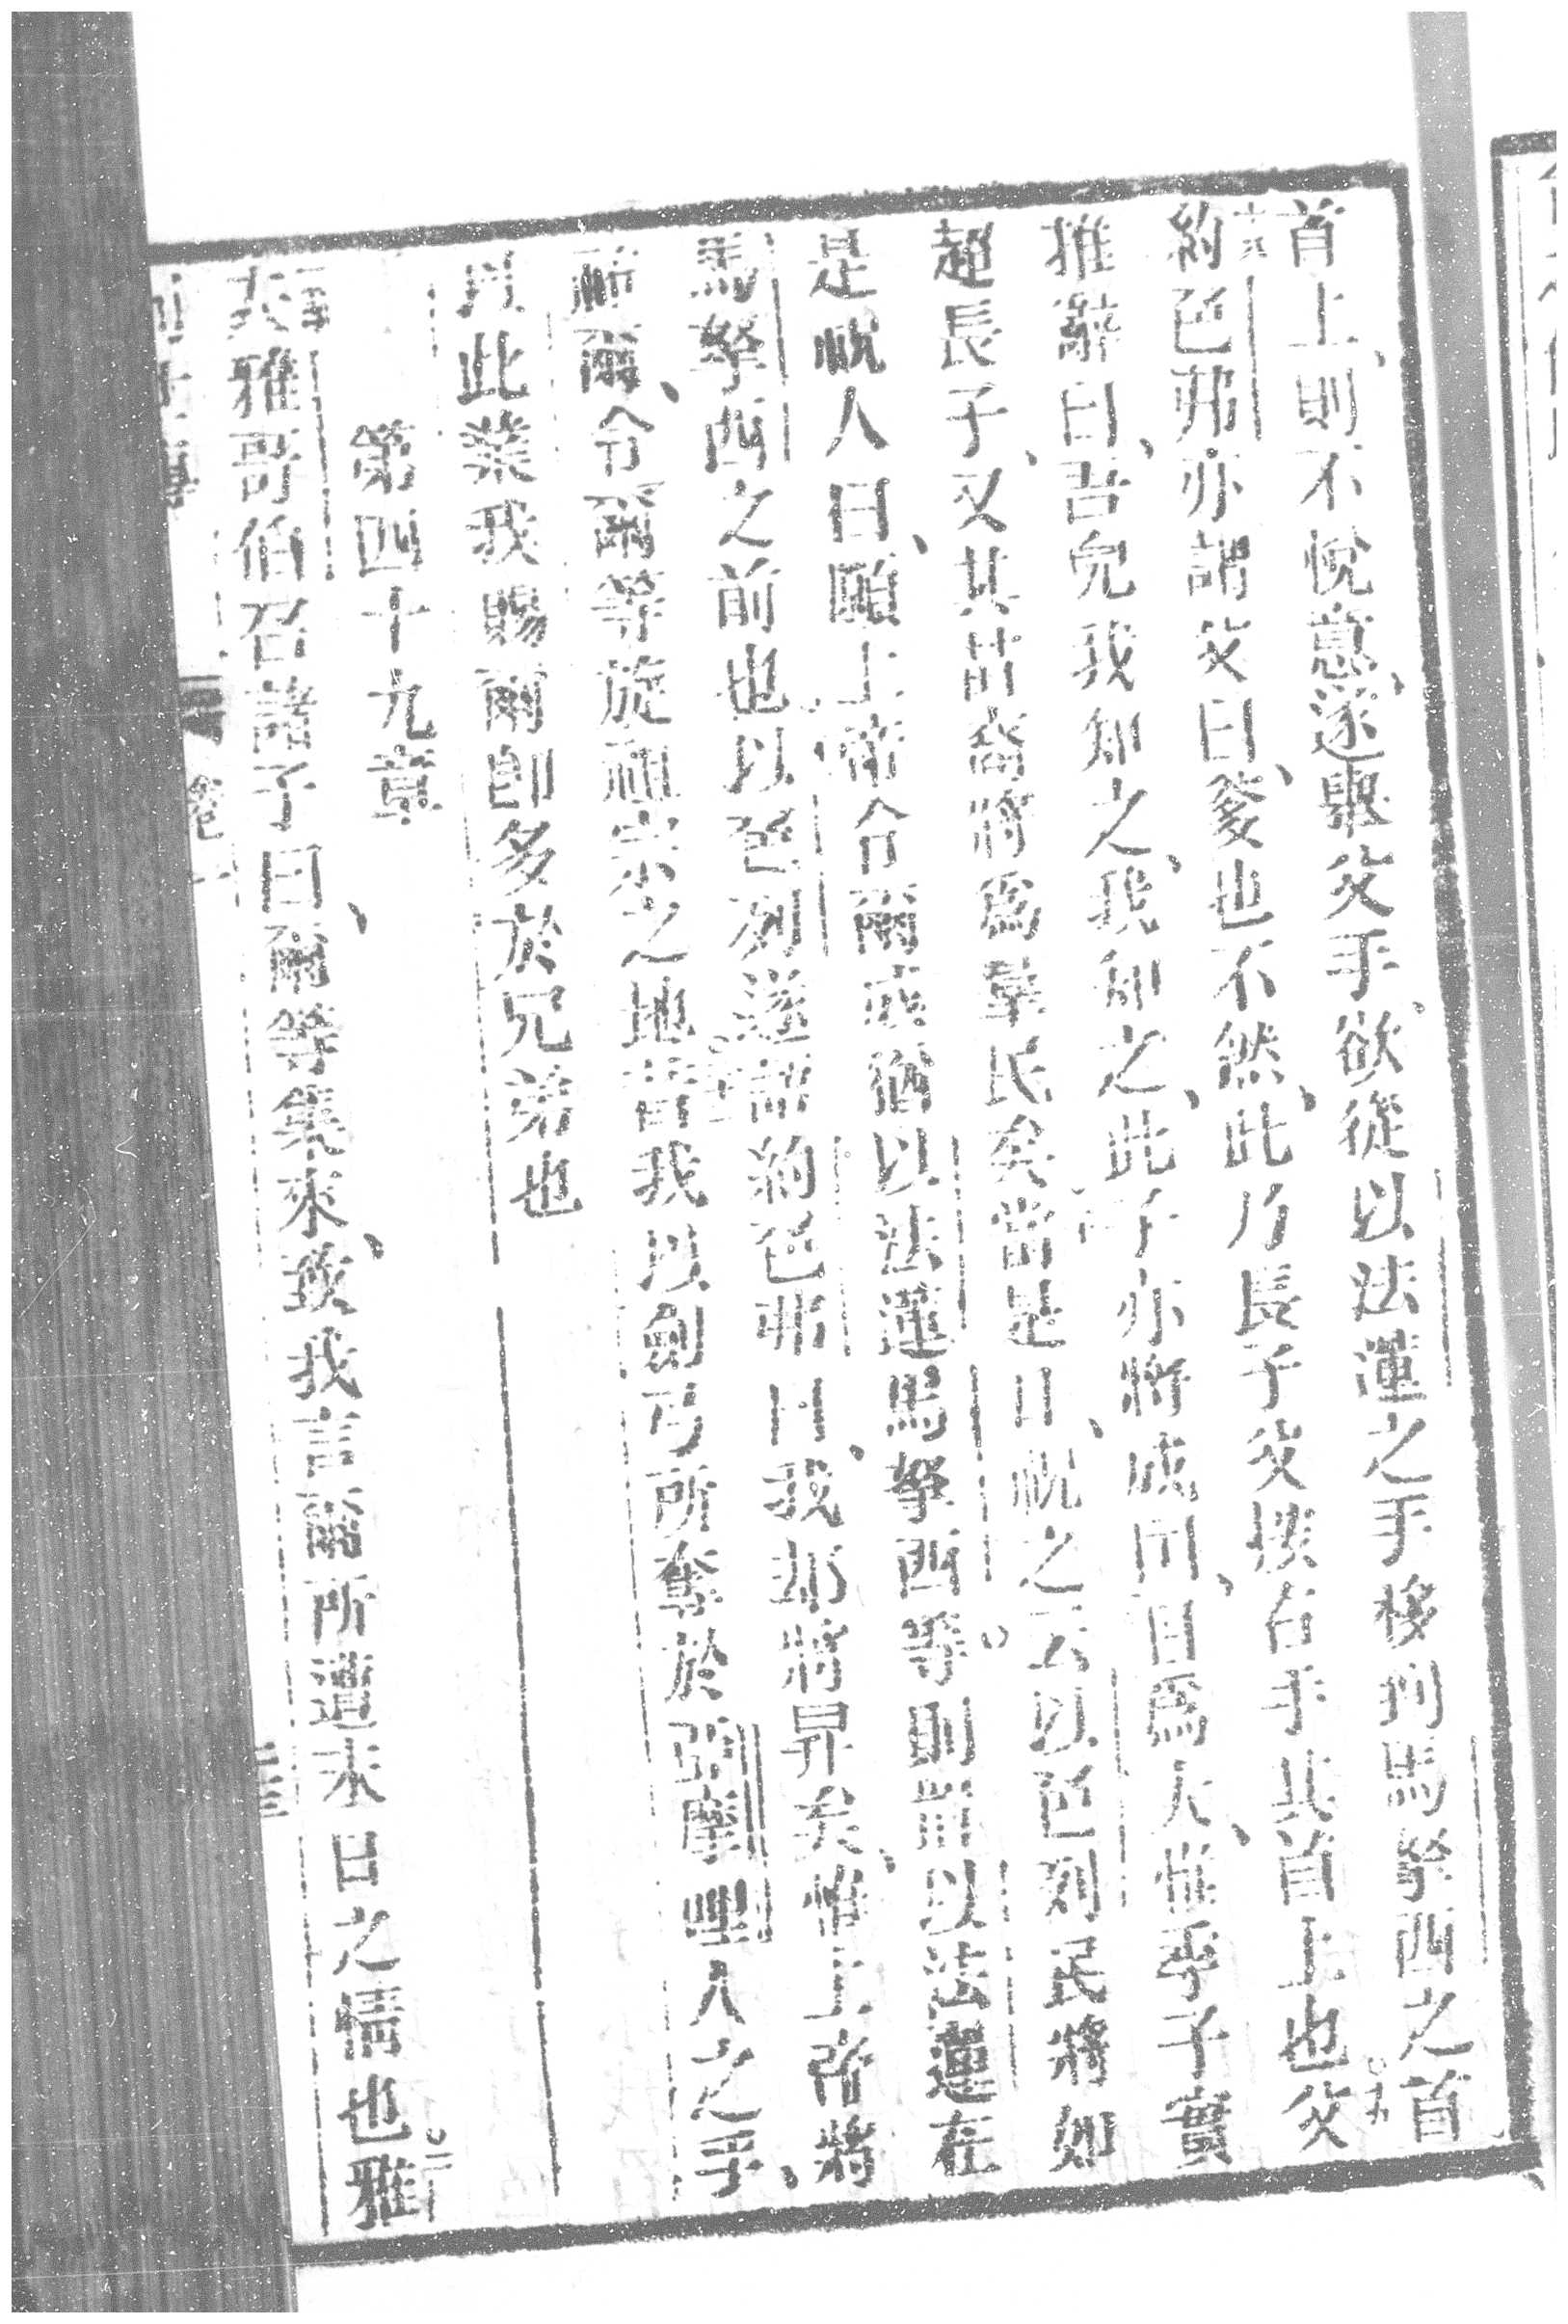 首上、則不悅意、遂舉父手、欲從以法蓮之手移到馬拏西之首
約色弗亦謂父曰、爹也不然、此乃長子父按右手其首上也父
推辭曰、吾兒我知之、我知之、此子亦將成国、且為大、惟季子實
超長子、又其苗裔將為羣民矣當是日、祝之云以色列民將如
是祝人曰、願上帝令爾成猶以法蓮馬拏西等則置以法蓮在
馬拏西之前也以色列遂謂約色弗曰、我即將昇矣、惟上帝將
祐爾、令爾等旋祖宗之地昔我以劍弓所奪於亞摩哩人之手、
以此業我賜爾即多於兄弟也
第四十九章
夫雅哥伯召諸子曰、爾等集來、致我言爾所遭末日之情也雅